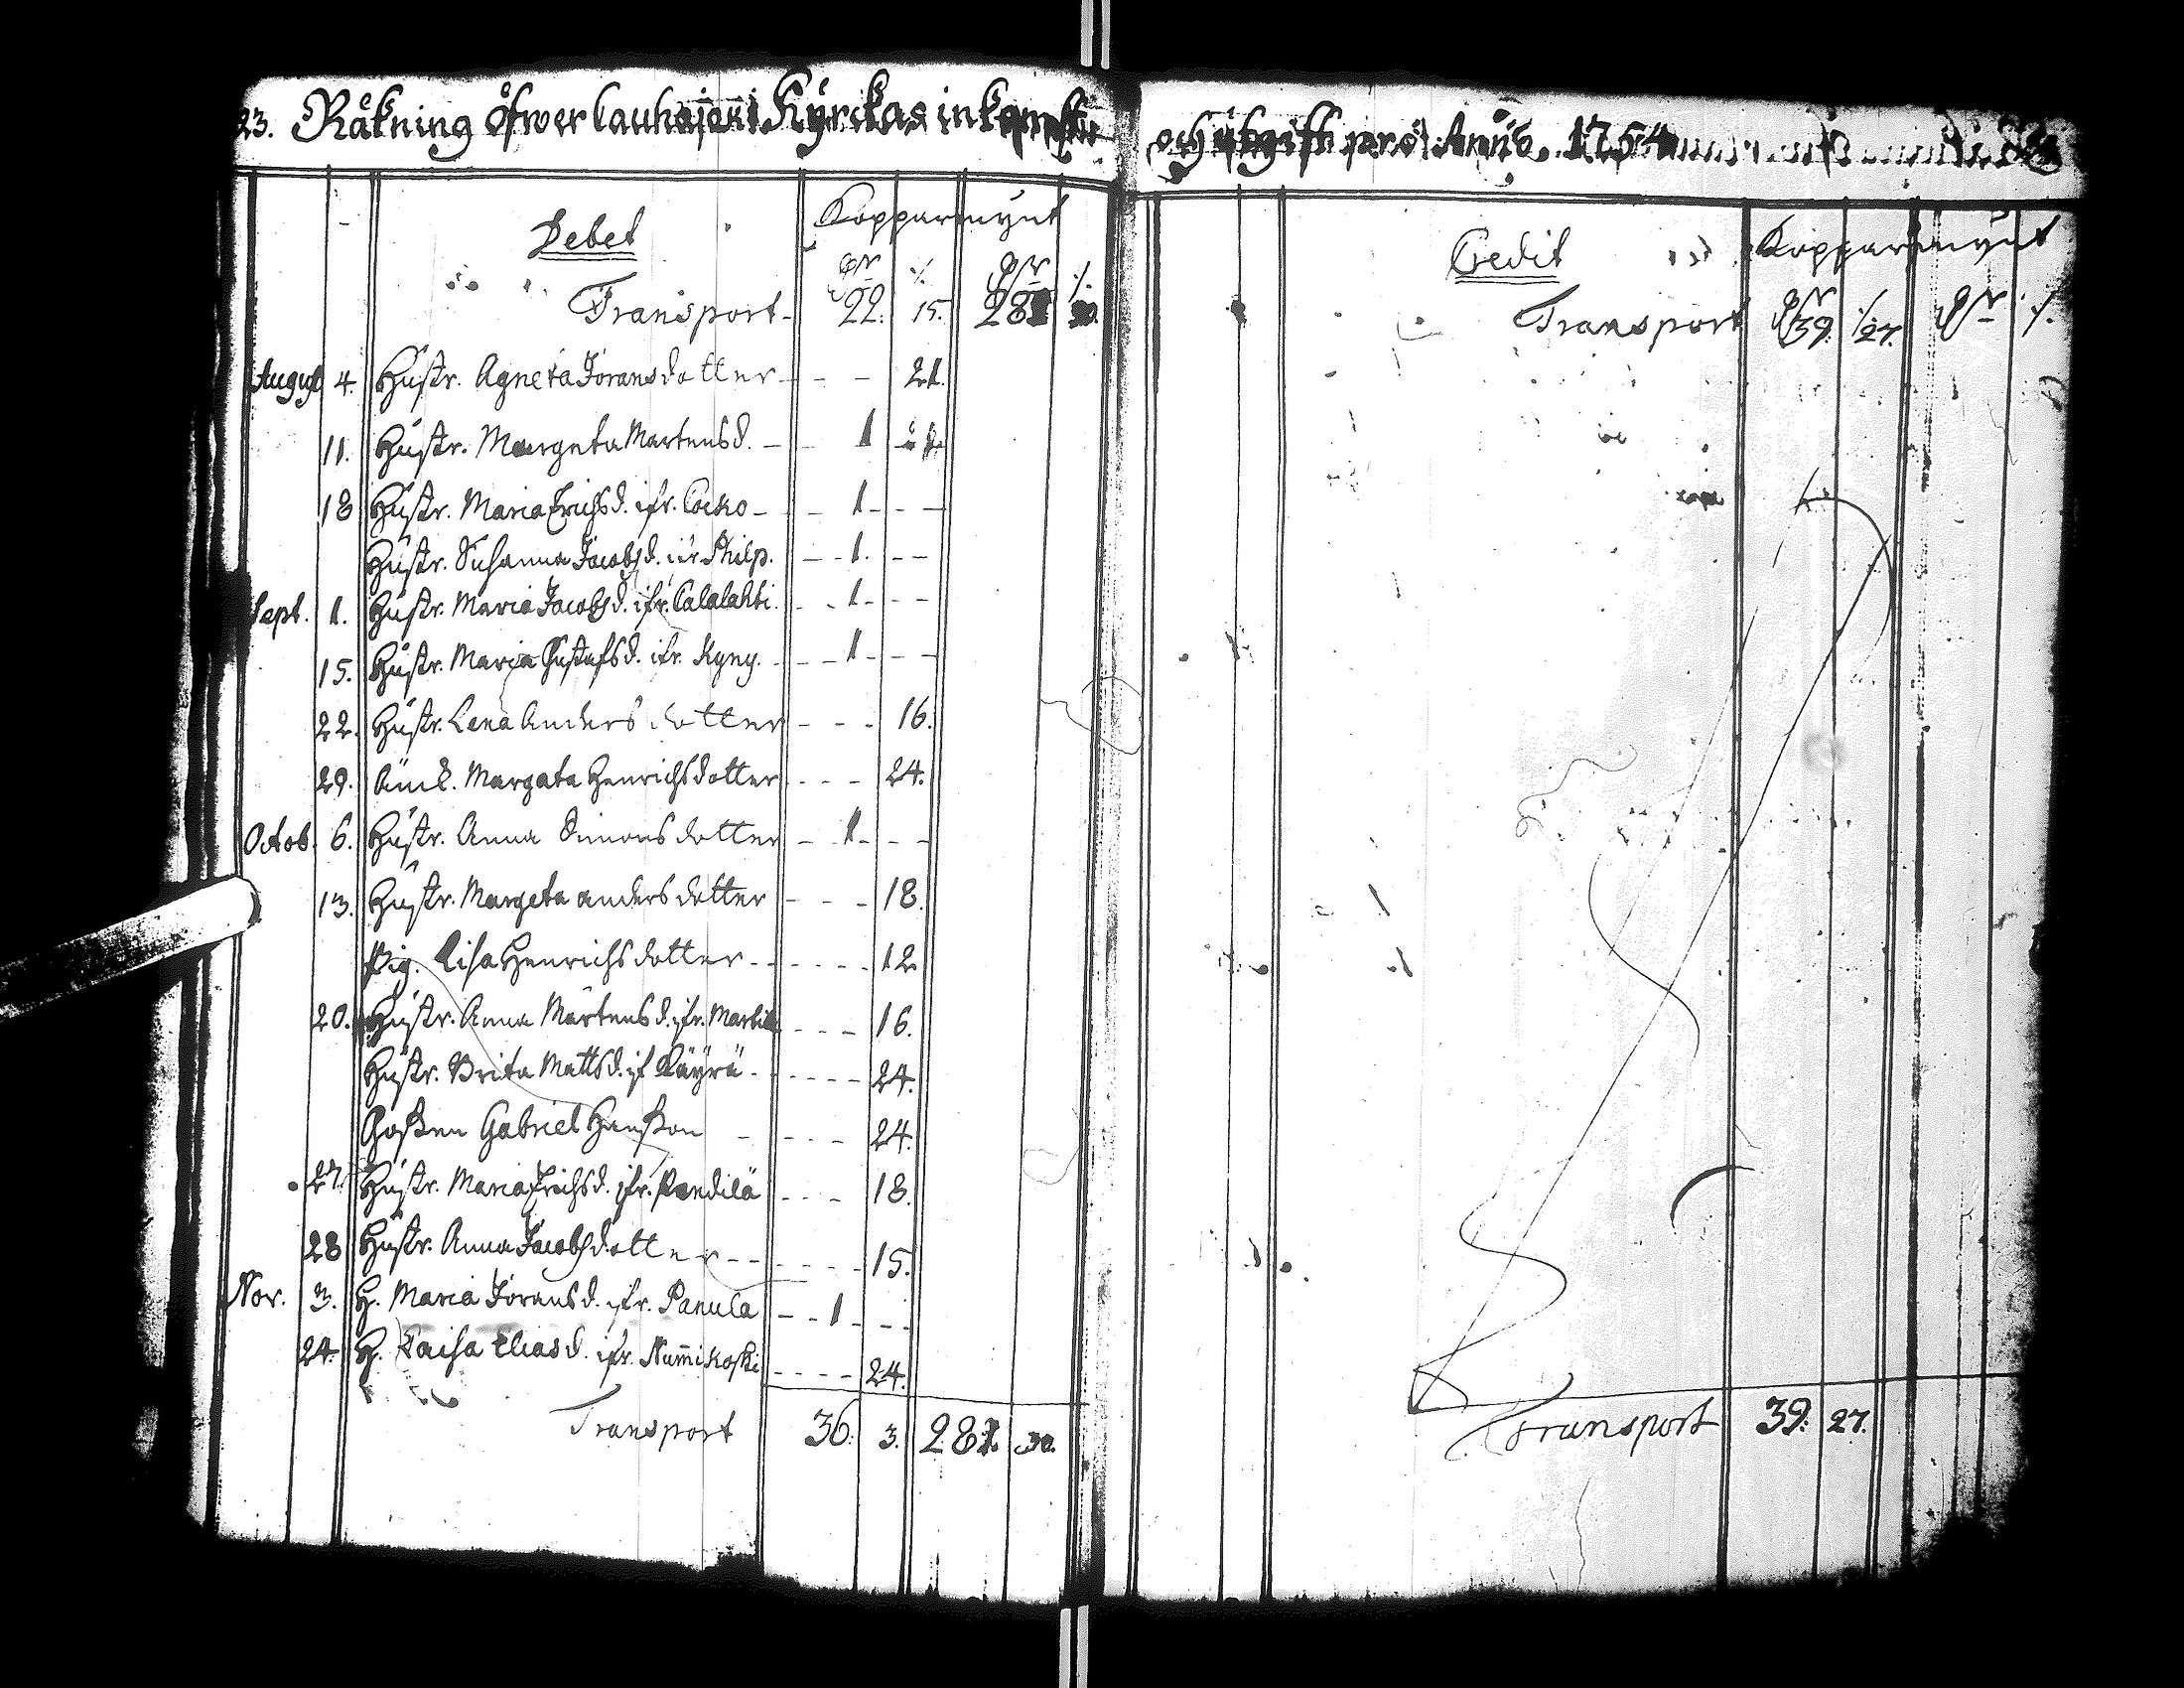 23. Räkning öfwer Lauhajoki Kyrckas inkomster
Debet
Kopparmynt
Dlr ./. Dlr ./.
Transport 22. 15. 281
August 4. Hustr. Agneta Jöransdotter - - - 21.
11. Hustr. Margeta Mårtensd. - - 1
18 Hustr. Maria Erichsd. ifr. Cocko - - 1 - - -
Hustr. Susanna Jacobsd. Philp. - - 1. - -
Sept. 1. Hustr. Maria Jacobsd. ifr. Calalahti. - - 1 - - -
15. Hustr. Maria Gustafsd. ifr. Kyny. - - 1 - - -
22. Hustr. Lena Anders dotter - - - 16.
29. Änck. Margata Henrichsdotter - - - 24.
Octob. 6. Hustr. Anna Simons dotter - - 1 - - -
13. Hustr. Margeta anders dotter - - - 18.
Pig. Lisa Henrichs dotter - - - - - 12
20. Hustr. Anna Mårtens d. ifr. - - - 16.
Hustr. Brita Matts d. if Käyrä - - - - - 24.
Gossen Gabriel Hansson - - - - 24.
27. Hustr. Maria Erichsd. ifr. Pendilä - - - 18.
28 Hustr. Anna Jacobsdotter - - - - - - 15.
Nov. 3. H. Maria Jöransd. ifr. Panula - - 1 - - -
24. H. Caisa Eliasd. ifr. Nummikoski - - - - 24.
Transport 36. 3. 281 30.
och utgift pro Anno 1754
Credit
Kopparmynt
Transport Dlr 39. ./. 27. Dlr ./.
Transport 39. 27.